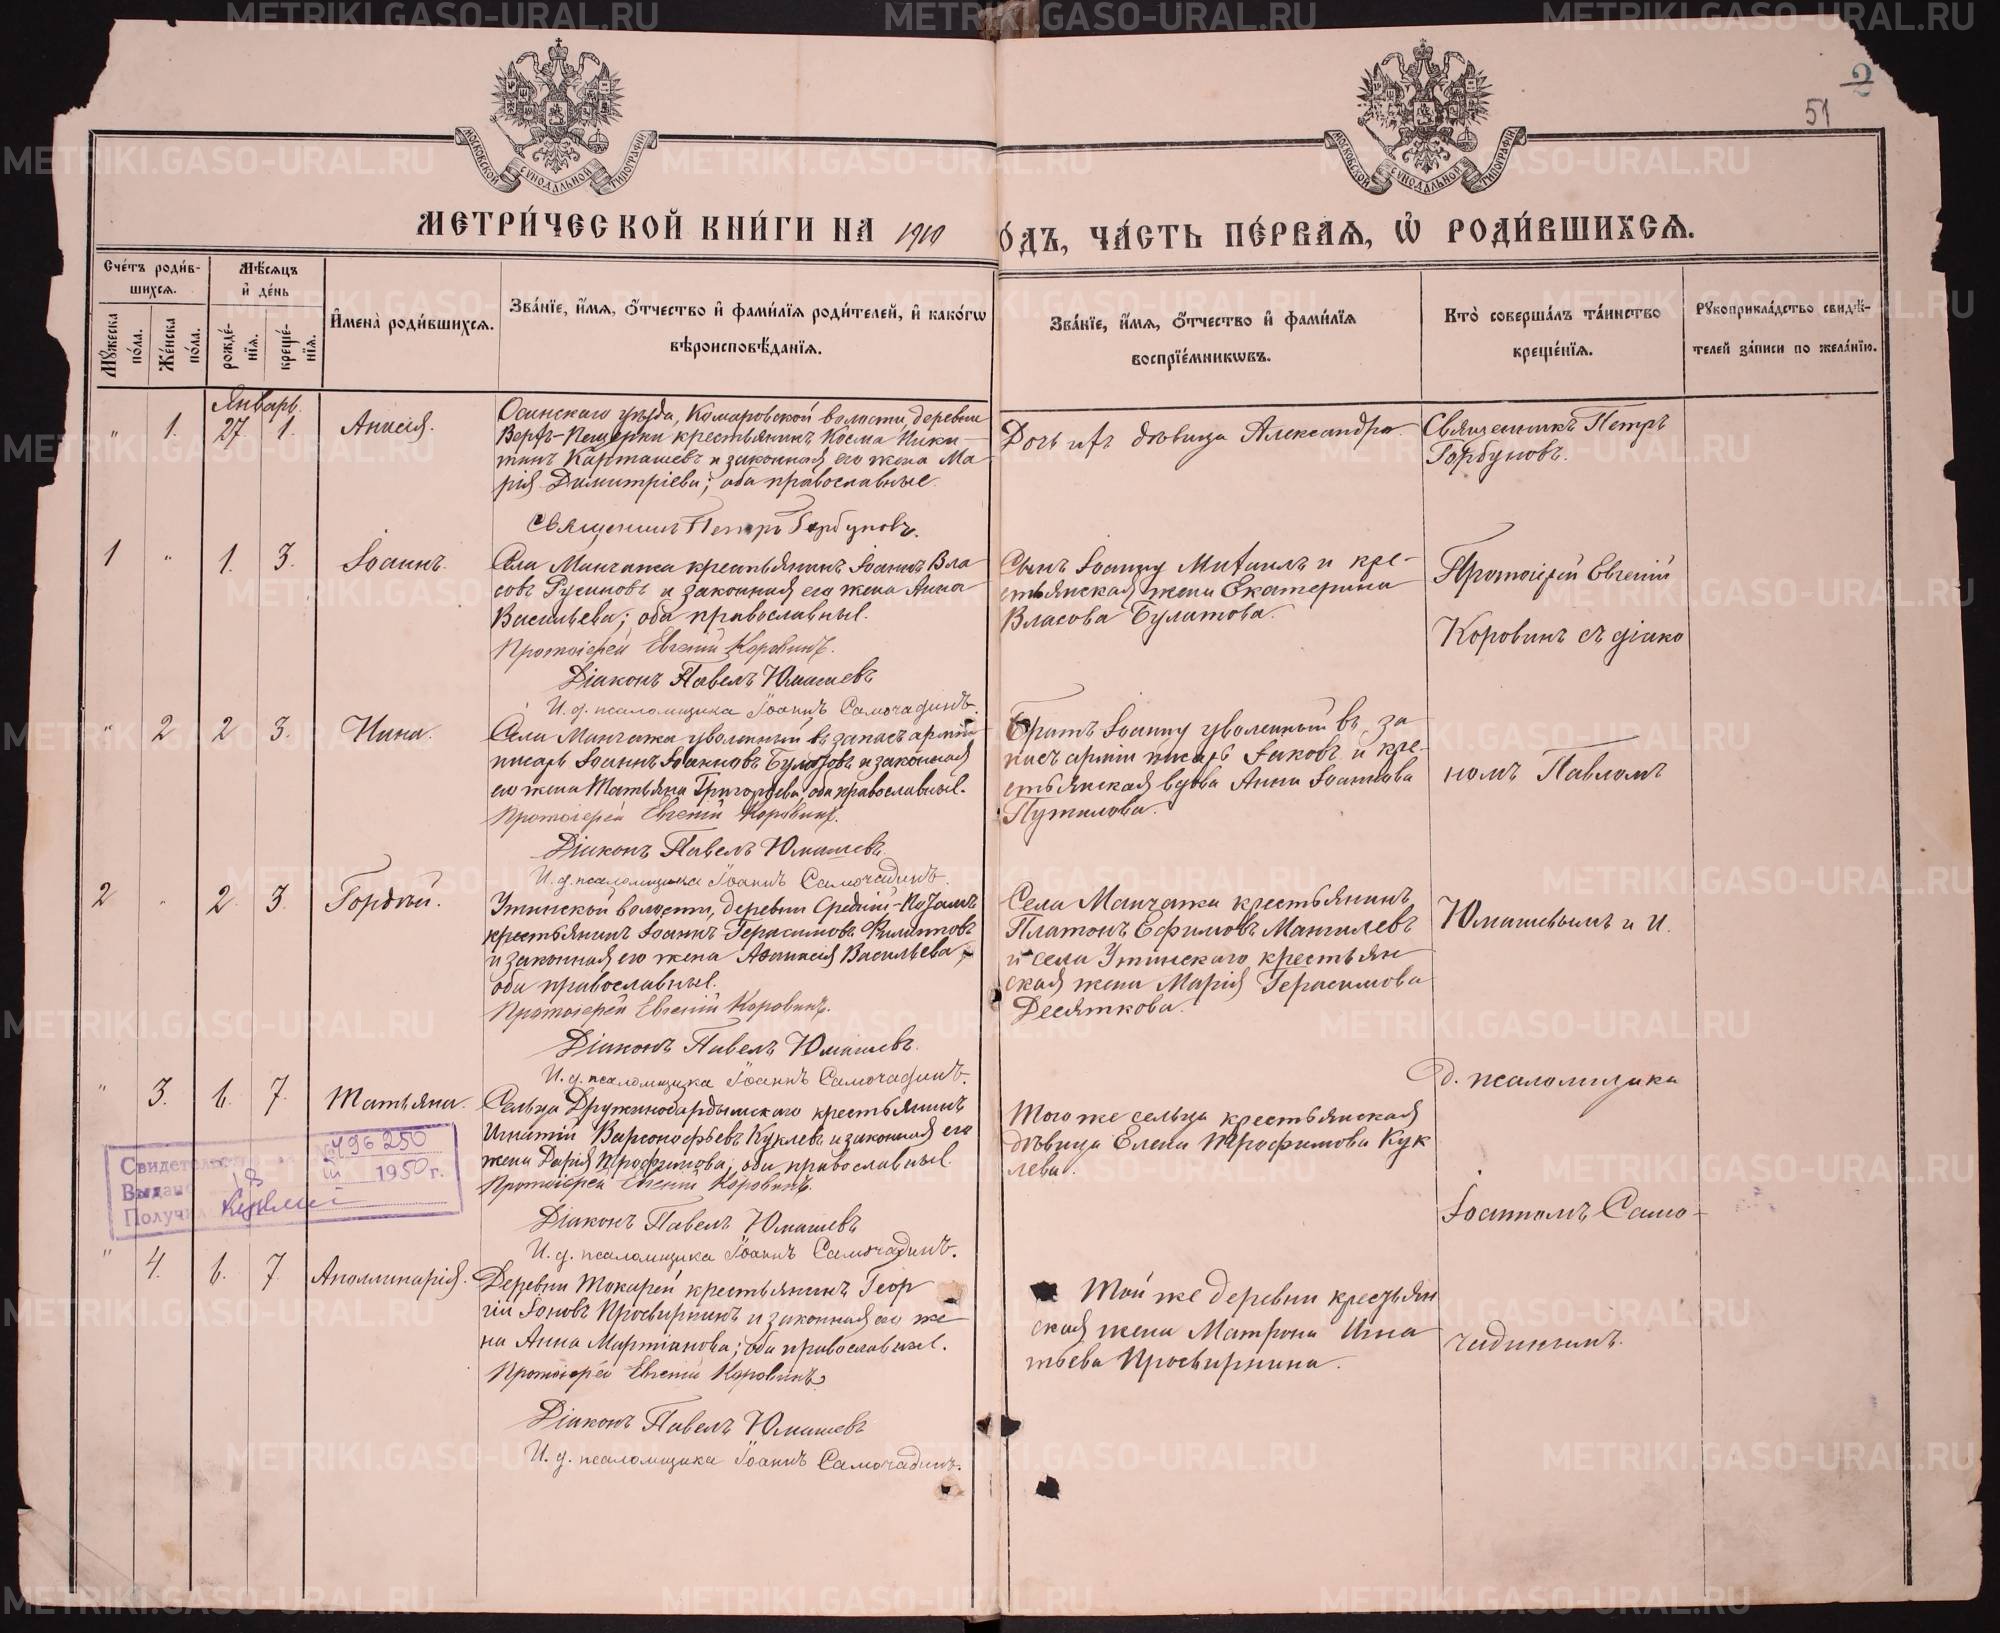 2
51
МОСКОВСКОЙ СѴНОДАЛЬНОЙ ТИПОГРАФІИ
МОСКОВСКОЙ СѴНОДАЛЬНОЙ ТИПОГРАФІИ
МЕТРИ́ЧЕСКОЙ КНИ́ГИ НА 1910
О́ДЪ, ЧА́СТЬ ПЕ́РВАѦ, Ѡ҆ РОДИ́ВШИХСѦ.
Сче́тъ роди́в-
шихсѧ.
Мꙋ́жеска по́ла.
Же́нска по́ла.
Мѣ́сѧцъ
и҆ де́нь
рожде́-
нїѧ.
креще́-
нїѧ.
И҆мена̀ роди́вшихсѧ.
Зва́нїе, и҆́мѧ, ѻ҆́тчество и҆ фами́лїѧ роди́телей, и҆ како́гѡ
вѣроисповѣ́данїѧ.
Зва́нїе, и҆́мѧ, ѻ҆́тчество и҆ фами́лїѧ
воспрїе́мникѡвъ.
Кто̀ соверша́лъ та́инство
креще́нїѧ.
Рꙋкоприкла́дство свидѣ́-
телей за́писи по жела́нїю.
Январь.
" 1. 27. 1. Анисія.
Осинскаго уѣзда, Комаровской волости, деревни
Верхъ-Пещерки крестьянинъ Косма Ники-
тинъ Карташевъ и законная его жена Ма-
рія Димитріева; оба православные.
Священник Петръ Горбуновъ.
Дочь ихъ дѣвица Александра.
Священникъ Петръ
Горбуновъ.
1 " 1. 3. Іоаннъ.
Села Манчажа крестьянинъ Іоаннъ Вла-
совъ Русиновъ и законная его жена Анна
Васильева; оба православные.
Протоіерей Евгеній Коровинъ.
Діаконъ Павелъ Юмашевъ
И. д. псаломщика Іоаннъ Самочадинъ.
Сынъ Іоанну Михаилъ и кре-
стьянская жена Екатерина
Власова Булатова.
Протоіерей Евгеній
Коровинъ съ діако
" 2 2 3. Нина.
Села Манчажа уволенный въ запасъ арміи
писарь Іоаннъ Іоанновъ Булатовъ и законная
его жена Татьяна Григорьева, оба православные.
Протоіерей Евгеній Коровинъ.
Діаконъ Павелъ Юмашевъ.
И. д. псаломщика Іоаннъ Самочадинъ.
Братъ Іоанну уволенный въ за
пасъ арміи писарь Іаковъ и кре-
стьянская вдова Анна Іоаннова
Путилова.
номъ Павломъ
2 " 2. 3. Гордѣй.
Утинской волости, деревни Средній-
крестьянинъ Іоаннъ Герасимовъ Филиповъ
и законная его жена Аѳанасія Васильева,
оба православные.
Протоіерей Евгеній Коровинъ.
Діаконъ Павелъ Юмашевъ.
И. д. псаломщика Іоаннъ Самочадинъ.
Села Манчажа крестьянинъ
Платонъ Ефимовъ Мангилевъ
и села Утинскаго крестьян
ская жена Марія Герасимова
Десяткова.
Юмашевымъ и И.
д. псаломщика
" 3. 6. 7. Татьяна.
Сельца Дружинобардымскаго крестьянинъ
Игнатій Варсонофьевъ Куклевъ и законная его
жена Дарія Трофимова; оба православные.
Протоіерей Евгеній Коровинъ.
Діаконъ Павелъ Юмашевъ
И. д. псаломщика Іоаннъ Самочадинъ.
Того же сельца крестьянская
дѣвица Елена Трофимова Кук
лева.
Іоанномъ Само-
№ 496250
Свидетельство
Выдано 1950 г.
Получил
" 4. 6. 7 Аполлинарія.
Деревни Токарей крестьянинъ Геор
гій Іоновъ Просвирнинъ и законная его же
на Анна Мартіанова; оба православные.
Протоіерей Евгеній Коровинъ
Діаконъ Павелъ Юмашевъ
И. д. псаломщика Іоаннъ Самочадинъ.
Той же деревни крестьян
ская жена Матрона Игна
тьева Просвирнина.
чадинымъ.
METRIKI.GASO-URAL.RU